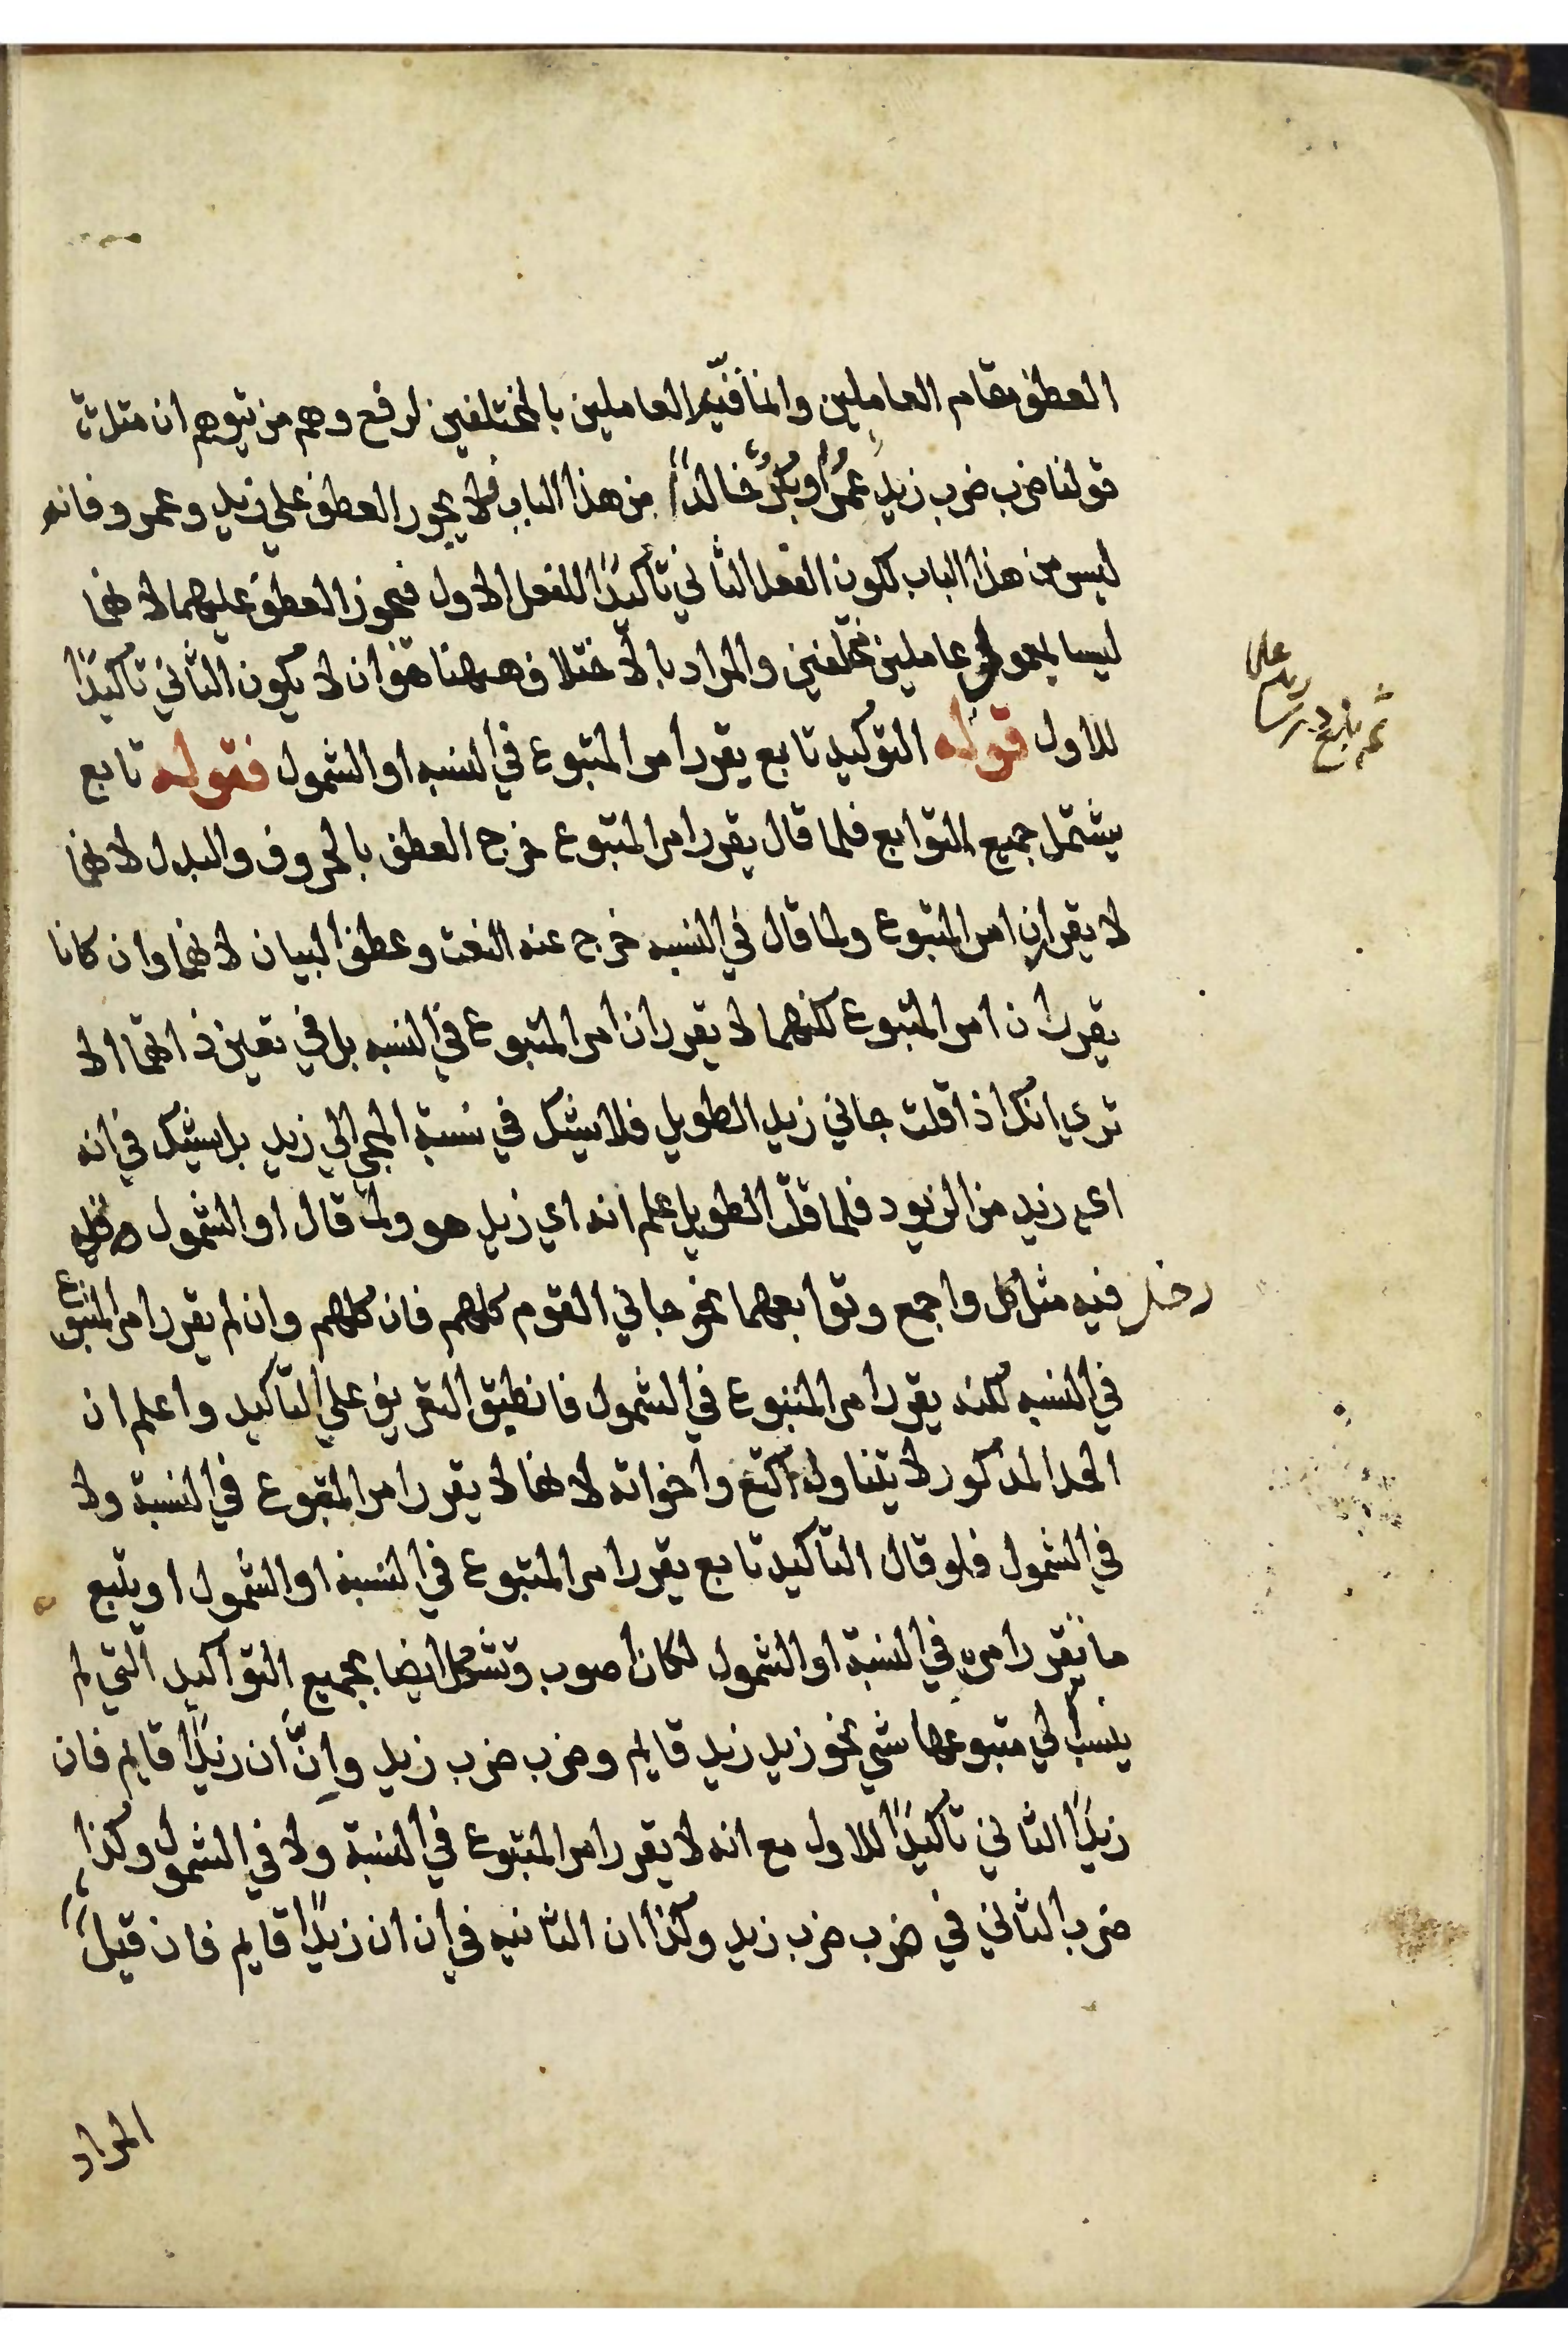 العطف مقام العاملين وانما قيد العاملين بالمختلفين لرفع وهم من توهم ان مثل
قولنا ضرب ضرب زيد عمرًا وبكرٌ خالدًا من هذا الباب فلا يجوز العطف علي زيد وعمرو فانه
ليس من هذا الباب لكون الفعل الثاني تأكيدًا للفعل الاول فيجوز العطف عليهما لانهما
ليسا بمعمولي عاملين مختلفين والمراد بالاختلاف ههنا هو ان لا يكون الثاني تأكيدًا
للاول قوله التوكيد تابع يقرر امر المتبوع في النسبه او الشمول فقوله تابع
يشتمل جميع التوابع فلما قال يقرر امر المتبوع خرج العطف بالحروف والبدل لانهما
لا يقرران امر المتبوع ولما قال في النسبه خرج عنه النعت وعطف البيان لانهما وان كانا
يقرران امر المتبوع لكنهما لا يقرران امر المتبوع في النسبه بل في تعين ذاتهما الا
تري انك اذا قلت جاني زيد الطويل فلا شك في نسبة المجي الي زيد بل شك في انه
اي زيد من الزيود فلما قلت الطويل علم انه اي زيد هو ولما قال او الشمول
دخل فيه مثل كل واجمع وتوابعهما نحو جاني القوم كلهم فان كلهم وان لم يقرر امر المتبوع
في النسبه لكنه يقرر امر المتبوع في الشمول فانطبق التعريف علي التأكيد واعلم ان
الحد المذكور لا يتناول اكتع واخواته لانها لا يقرر امر المتبوع في النسبة ولا
في الشمول فلو قال التأكيد تابع يقرر امر المتبوع في النسبه او الشمول او يتبع
ما يقرر امره في النسبة او الشمول لكان اصوب وتشكل ايضا بجميع التواكيد التي لم
ينسب الي متبوعها شي نحو زيد زيد قايم وضرب ضرب زيد وإنّ ان زيدًا قايم فان
زيدًا الثاني تأكيدًا للاول مع انه لا يقرر امر المتبوع في النسبة ولا في الشمول وكذا
ضرب الثاني في ضرب ضرب زيد وكذا ان الثانيه في إن ان زيدًا قايم فان قيل
المراد
ثم بلغ درسا علي